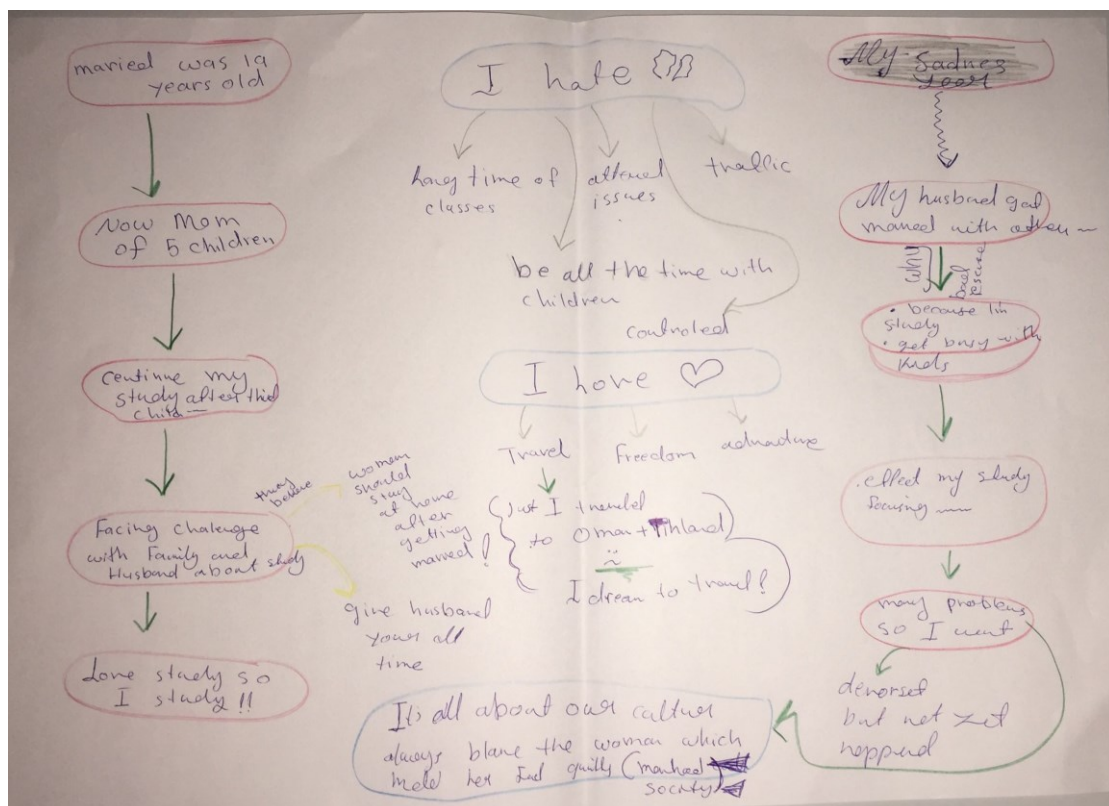 maried was 19
years old
Now Mom
of 5 children
continue my
study after third
child
Facing chalenge
with Family and
Husband about study
they
believe
women
should
stay
at home
after
getting
married!
give husband
your all
time
Love study so
I study !!
I hate
long time of
classes
be all the time with
children
issues
controled
traffic
I love
Travel
Freedom
just I traveled
to Oman + Finland
I dream to travel!
It's all about our cultur
always blame the woman which
made her feel guilty (
society)
My Sadnes
year
My husband get
maried with other
why
because I'm
study
• get busy with
kids
effect my study
focusing
many problems
so I want
but not yet